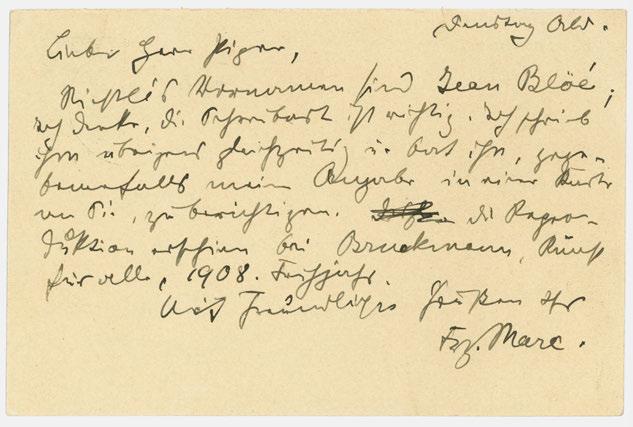 Dienstag Abd.
Lieber Herr Piper,
Niestlé's Vornamen sind Jean Bloé;
ich denke, die Schreibart ist richtig. Ich schrieb
ihm übrigens gleichzeitig u. bat ihn, gege-
benenfalls meine Angabe in einer Karte
an Sie, zu berichtigen. die Repro-
duktion erschien bei Bruckmann, Kunst
für alle, 1908. Frühjahr.
Mit freundlichen Grüßen Ihr
Frz. Marc.